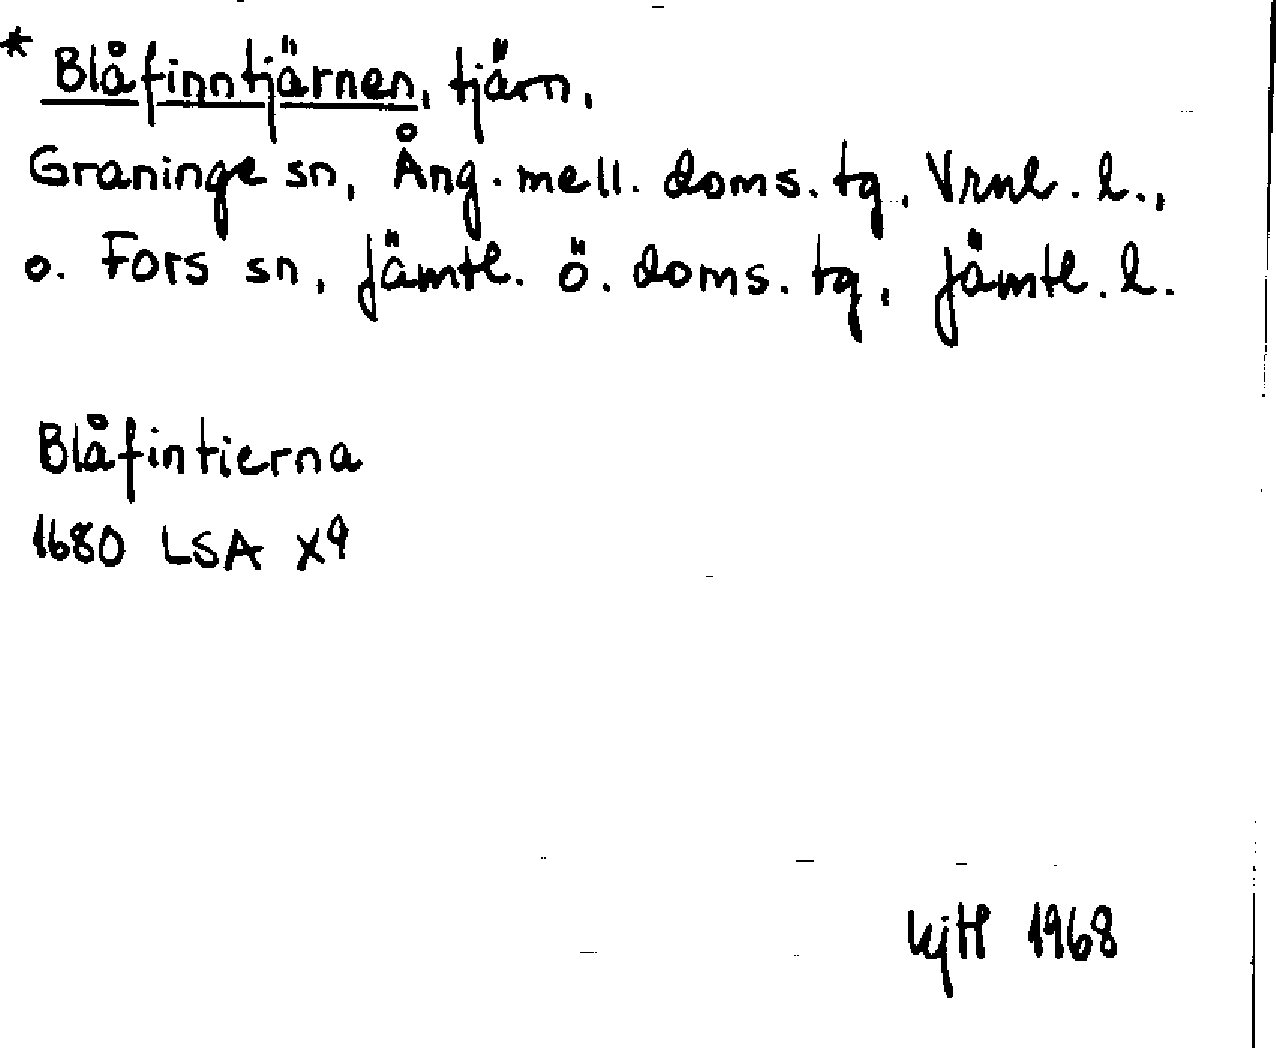 * Blåfinntjärnen, tjärn,
Graninge sn, Ång. mell. doms. tg, Vrnl. l.,
o. Fors sn, Jämtl. ö. doms. tg, Jämtl. l.
Blåfintierna
1680 LSA X9
1968